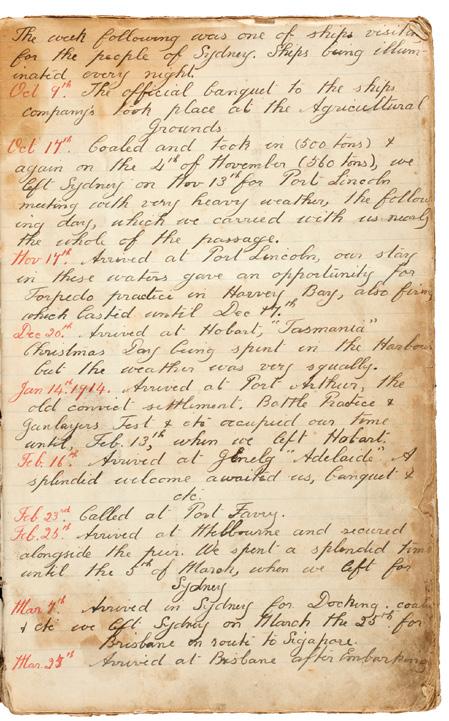 The week following was one of ships visiting
for the people of Sydney. Ships being illum-
inated every night.
Oct 9th. The official banquet to the ships
company's took place at the Agricultural
Grounds
Oct 17th. Coaled and took in (500 tons) &
again on the 4th of November (560 tons), we
left Sydney on Nov 13th for Port Lincoln
meeting with very heavy weather, the follow
ing day, which we carried with us nearly
the whole of the passage.
Nov 17th. Arrived at Port Lincoln, our stay
in these waters gave an opportunity for
Torpedo practice in Harvey Bay, also firing
which lasted until Dec 17th
Dec 20th. Arrived at Hobart, "Tasmania"
Christmas Day being spent in the Harbour
but the weather was very squally.
Jan 14th 1914. Arrived at Port Arthur, the
old convict settlement. Battle Practice &
Gunlayers Test & etc occupied our time
until, Feb. 13th, when we left Hobart.
Feb. 16th. Arrived at Glenelg "Adelaide" A
splendid welcome awaited us, banquet &
etc.
Feb 23rd Called at Port
Feb. 26th. Arrived at Melbourne and secured
alongside the pier. We spent a splendid time
until the 5th of March, when we left for
Sydney
Mar 7th. Arrived in Sydney for Docking. coal
& etc we left Sydney on March the 25th. for
Brisbane en route to Sigapore.
Mar. 27th Arrived at Brisbane after Embarking